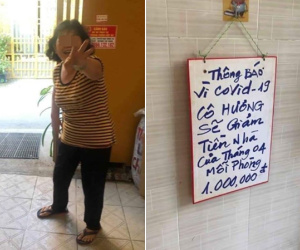 Thông BÁO
Vì COVID-19
CÔ HƯƠNG
SẼ Giảm
Tiền NHÀ
Của Tháng 04
MỖI Phòng
1.000.000 đ